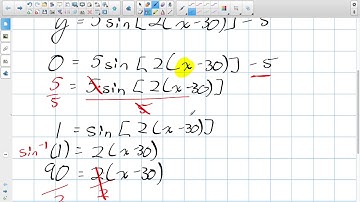 y = 5sin[2(x-30)] - 5
0 = 5sin[2(x-30)] - 5
5/5 = 5sin[2(x-30)]/5
1 = sin[2(x-30)]
sin⁻¹(1) = 2(x-30)
90/2 = 2(x-30)/2